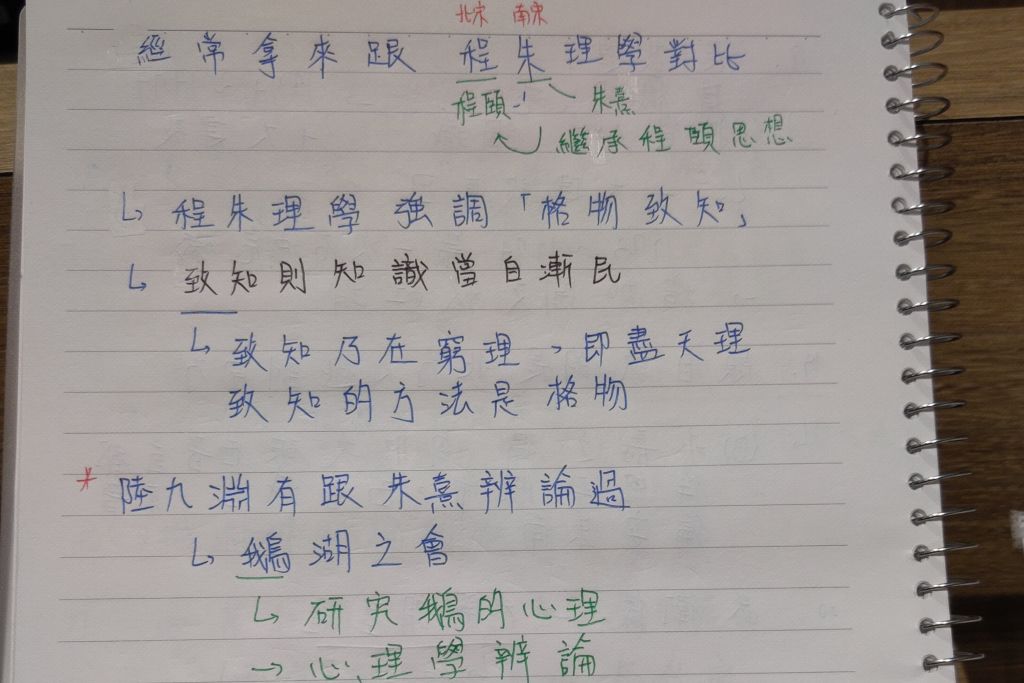 北宋 南宋
經常拿來跟 程朱理學對比
程頤 朱熹
繼承程頤思想
程朱理學 強調「格物致知」
致知則知識當自漸民
致知乃在窮理,即盡天理
致知的方法是格物
*陸九淵有跟朱熹辨論過
鵝湖之會
研究鵝的心理
→心理學辨論